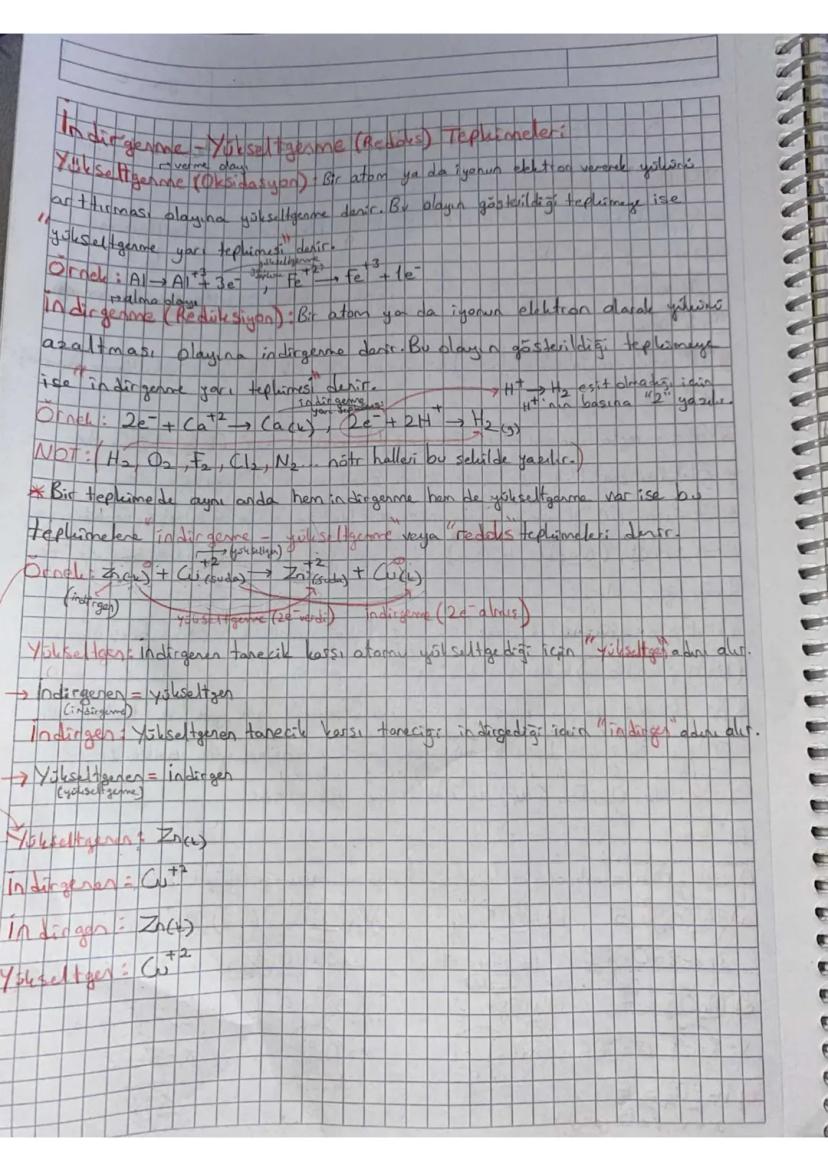 İndirgenme - Yükseltgenme (Redoks) Tepkimeleri
→ verme olayı
Yükseltgenme (Oksidasyon): Bir atom ya da iyonun elektron vererek yükünü
arttırması olayına yükseltgenme denir. Bu olayın gösterildiği tepkimeye ise
"yükseltgenme yarı tepkimesi" denir.
Örnek: Al → Al⁺³ + 3e⁻ , Fe⁺² → Fe⁺³ + 1e⁻
→ alma olayı
İndirgenme (Redüksiyon): Bir atom ya da iyonun elektron alarak yükünü
azaltması olayına indirgenme denir. Bu olayın gösterildiği tepkimeye
ise "indirgenme yarı tepkimesi" denir.
→ H⁺ → H₂ eşit olmadığı için
H⁺'nin başına "2" yazılır.
indirgenme
Örnek: 2e⁻ + Ca⁺² → Ca(k) , 2e⁻ + 2H⁺ → H₂(g)
NOT: (H₂, O₂, F₂, Cl₂, N₂... nötr halleri bu şekilde yazılır.)
* Bir tepkimede aynı anda hem indirgenme hem de yükseltgenme var ise bu
tepkimelere "indirgenme - yükseltgenme" veya "redoks" tepkimeleri denir.
→ (yükseltgen)
Örnek: Zn(k)⁰ + Cu⁺²(suda) → Zn⁺²(suda) + Cu⁰(k)
(indirgen)
yükseltgenme (2e⁻ verdi) indirgenme (2e⁻ almış)
Yükseltgen: İndirgenen tanecik karşı atomu yükseltgediği için "yükseltgen" adını alır.
→ İndirgenen = yükseltgen
(indirgenme)
İndirgen: Yükseltgenen tanecik karşı taneciği indirgediği için "indirgen" adını alır.
→ Yükseltgenen = indirgen
(yükseltgenme)
Yükseltgenen: Zn(k)
İndirgenen = Cu⁺²
İndirgen: Zn(k)
Yükseltgen: Cu⁺²